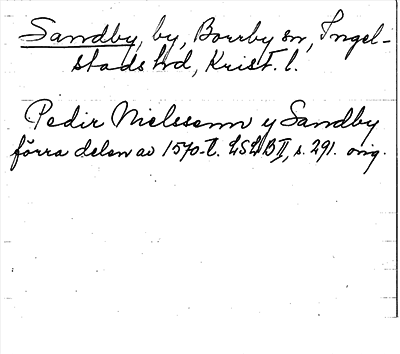 Sandby, by, Borrby sn, Ingel-
stads hd, Krist. l.
Pedir Nielssenn y Sandby
förra delen av 1570-t. LSLB II, s. 291. orig.